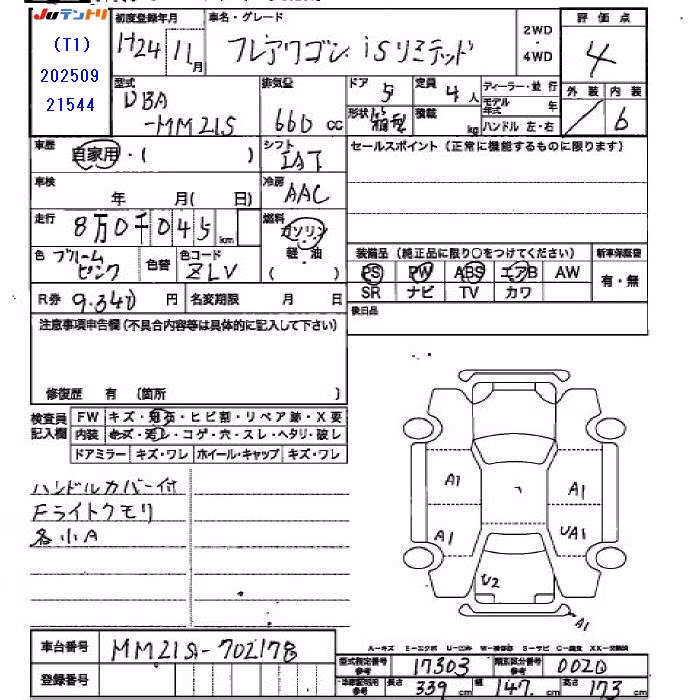 JUテントリ
(T1)
202509
21544
初度登録年月
H24年11月
車名・グレード
フレアワゴン iSリミテッド
2WD
・
4WD
評価点
4
型式
DBA
-MM21S
排気量
660 cc
ドア 5
定員 4人
形状 箱型
積載 kg
ディーラー・並行
モデル年式 年
ハンドル 左・右
外装 内装
/ 6
車歴
自家用・( )
シフト
IAT
セールスポイント(正常に機能するものに限ります)
車検
年 月( 日)
冷房
AAC
走行
8万0千045km
燃料
ガソリン
・
軽・油
( )
色 プルーム
ピンク
色替
色コード
ZLV
装備品(純正品に限り○をつけてください)
新車保証書
PS PW ABS エアB AW
有・無
SR ナビ TV カワ
R券 9.340円
名変期限 月 日
後日品
注意事項申告欄(不具合内容等は具体的に記入して下さい)
修復歴 有 (箇所 )
検査員
記入欄
FW キズ・飛石・ヒビ割・リペア跡・X要
内装 キズ・汚レ・コゲ・穴・スレ・ヘタリ・破レ
ドアミラー キズ・ワレ ホイール・キャップ キズ・ワレ
ハンドルカバー付
Fライトクモリ
各小A
A1
A1
A1
UA1
U2
A1
A-キズ E-エクボ U-凹み W-補修跡 S-サビ C-腐食 XX-交換済
車台番号
MM21S-702178
登録番号
型式指定番号
参考
17303
類別区分番号
参考
0020
車庫証明用
参考
長さ 339 cm
幅 147 cm
高さ 173 cm